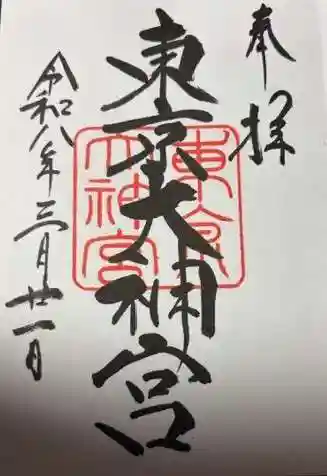 奉拝
東京大神宮
東京
大神宮
令和八年三月廿一日